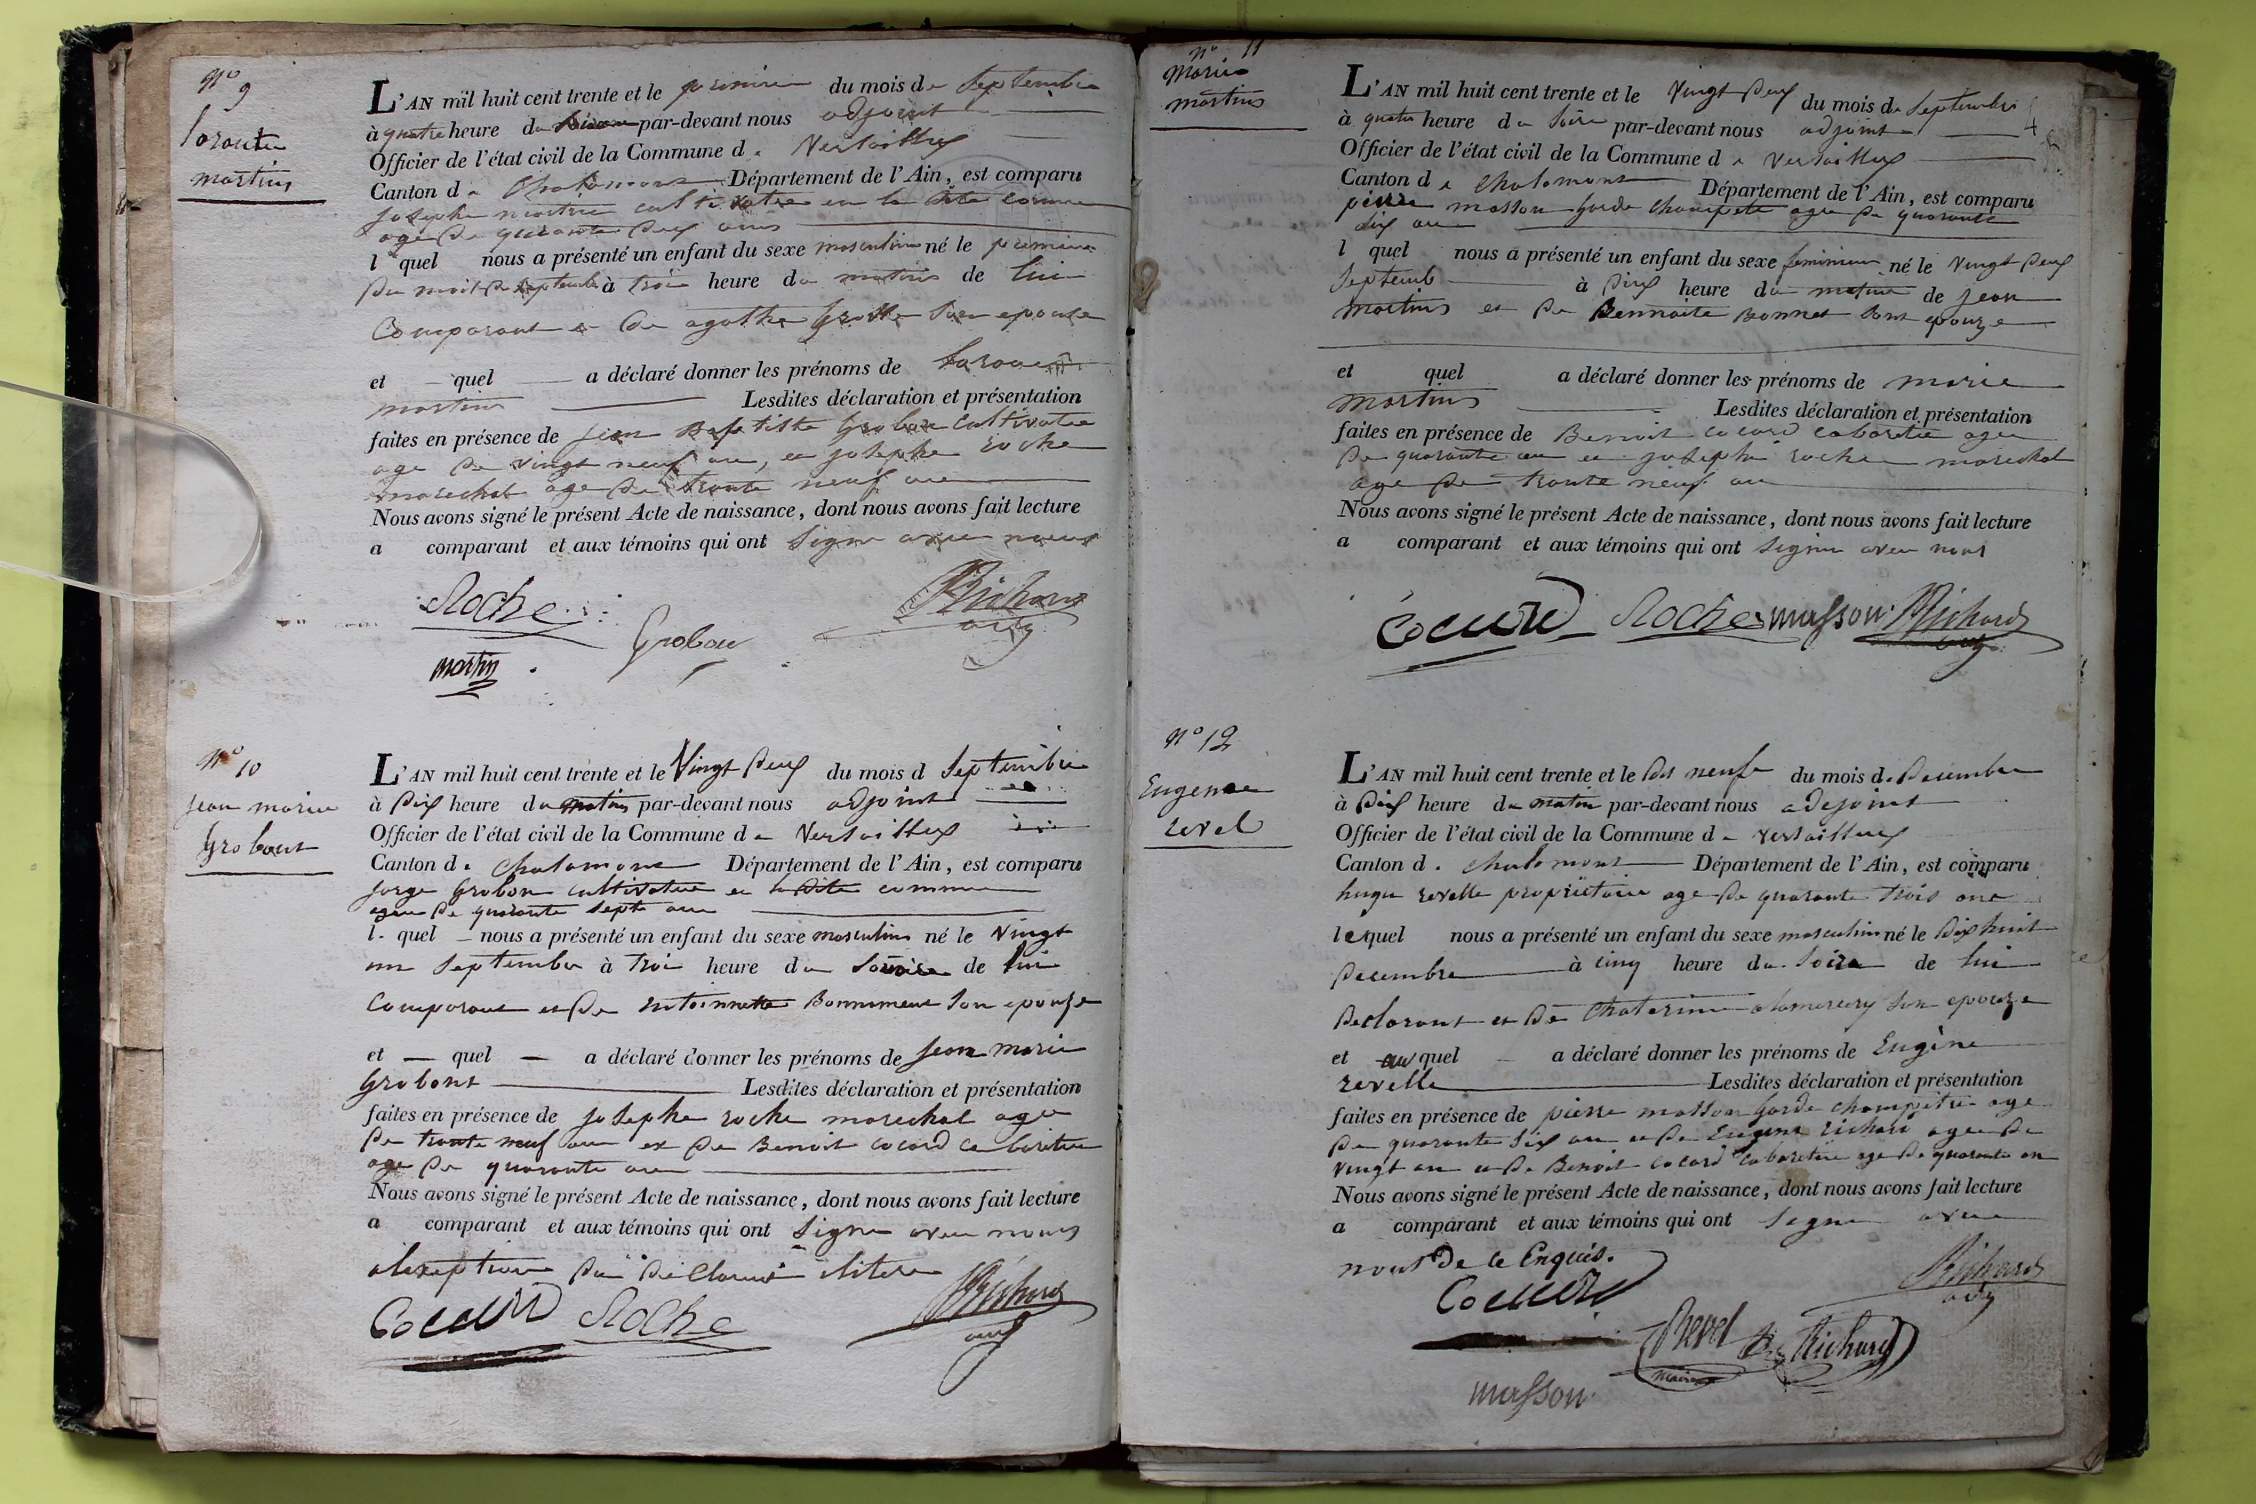 N° 9
martin
L'AN mil huit cent trente et le premier du mois de Septembre
à quatre heure du par-devant nous adjoint
Officier de l'état civil de la Commune d. Versailleux
Canton de Chalamont Département de l'Ain, est comparu
Josephe martin cultivatre en la dite comune
age de quarante deux ans
lequel nous a présenté un enfant du sexe masculin né le premier
Du mois De septembre à troi heure du matin de lui
Comparant et de agathe son epouse
et quel a déclaré donner les prénoms de
martin Lesdites déclaration et présentation
faites en présence de jean Baptiste Grobon cultivatre
age De vingt neuf an, et josephe roche
marechal age De trante neuf an
Nous avons signé le présent Acte de naissance, dont nous avons fait lecture
a comparant et aux témoins qui ont Signe avec nous
Roche
Richard
adj
Grobon
martin
N° 10
jean marie
Grobont
L'AN mil huit cent trente et le Vingt Deux du mois d Septembre
à Dix heure du matin par-devant nous adjoint
Officier de l'état civil de la Commune de Versailleux
Canton d. Chalamont Département de l'Ain, est comparu
jorge Grobon cultivateur en la dite commune
agee De quarante septe an
l. quel nous a présenté un enfant du sexe masculin né le Vingt
un Septembre à troi heure du Soire de lui
Comparant et De entoinnette Bonnement Son epouze
et quel a déclaré donner les prénoms de jean marie
Grobont Lesdites déclaration et présentation
faites en présence de josephe roche marechal age
De trante neuf an et De Benoit cocard cabaritier
age De quarante an
Nous avons signé le présent Acte de naissance, dont nous avons fait lecture
a comparant et aux témoins qui ont Signe avec nous
alexeption Du Declarant ilitere
Cocard Roche Richard
adj
N° 11
Marie
martin
L'AN mil huit cent trente et le Vingt Deux du mois de Septembre
à quatre heure du Soire par-devant nous adjoint
Officier de l'état civil de la Commune de Versailleux
Canton de Chalamont Département de l'Ain, est comparu
pierre masson Garde Champete age De quarante
six an
l quel nous a présenté un enfant du sexe feminin né le Vingt Deux
Septemb à Dix heure du matin de jean
martin et De Bennoite Bonnet Sont epouze
et quel a déclaré donner les prénoms de marie
martin Lesdites déclaration et présentation
faites en présence de Benoit cocard cabaretie age
De quarante an et josephe roche marechal
age De trante neuf an
Nous avons signé le présent Acte de naissance, dont nous avons fait lecture
a comparant et aux témoins qui ont signe avec nous
Cocard Roche masson Richard
adj
N° 12
Eugene
revel
L'AN mil huit cent trente et le Dis neufe du mois de Decembre
à Dix heure du matin par-devant nous adejoint
Officier de l'état civil de la Commune de Versailleux
Canton d. Chalamont Département de l'Ain, est comparu
hugue revelle propriétaire age De quarante trois ans
lequel nous a présenté un enfant du sexe masculin né le Dix huit
Decembre à cinq heure du Soire de lui
Declarant et De Chaterine alamercery Son epouze
et au quel a déclaré donner les prénoms de Eugène
revelle Lesdites déclaration et présentation
faites en présence de pierre masson Garde champêtre age
De quarante six an et De Eugene richard agee De
vingt an et De Benoit cocard cabaretire age De quarante an
Nous avons signé le présent Acte de naissance, dont nous avons fait lecture
a comparant et aux témoins qui ont Signe avec
nous De ce Enquis.
Cocard
Richard
adj
Revel Richard
maire
masson